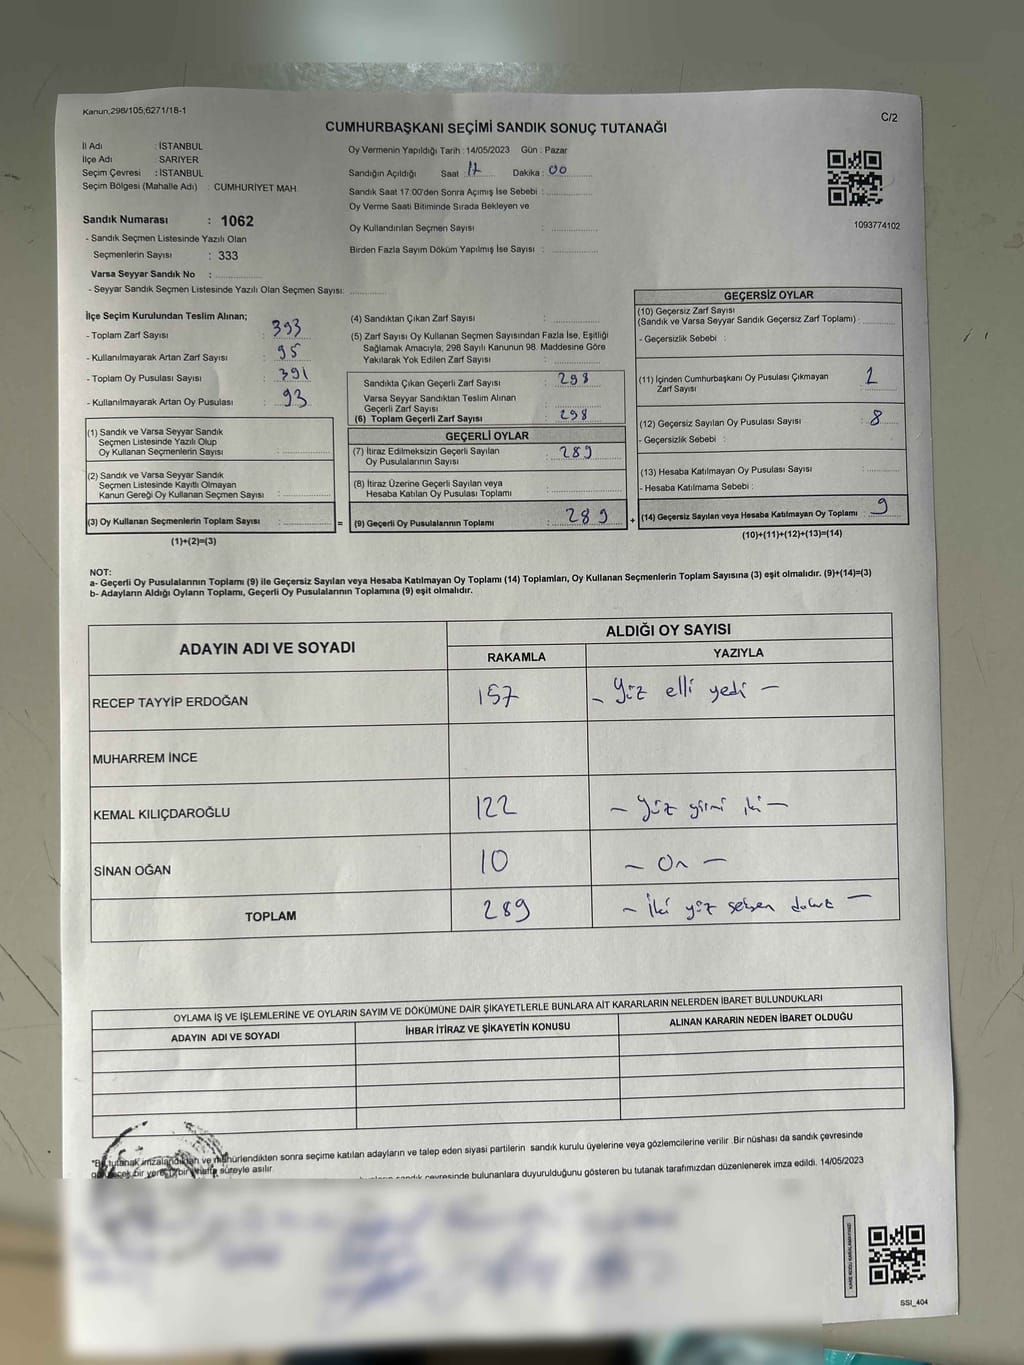 Kanun;298/105;6271/18-1
C/2
CUMHURBAŞKANI SEÇİMİ SANDIK SONUÇ TUTANAĞI
İl Adı : İSTANBUL
İlçe Adı : SARIYER
Seçim Çevresi : İSTANBUL
Seçim Bölgesi (Mahalle Adı) : CUMHURİYET MAH.
Sandık Numarası : 1062
- Sandık Seçmen Listesinde Yazılı Olan
Seçmenlerin Sayısı : 333
Varsa Seyyar Sandık No :
- Seyyar Sandık Seçmen Listesinde Yazılı Olan Seçmen Sayısı:
Oy Vermenin Yapıldığı Tarih : 14/05/2023 Gün : Pazar
Sandığın Açıldığı Saat : 17 Dakika : 00
Sandık Saat 17:00'den Sonra Açımış İse Sebebi :
Oy Verme Saati Bitiminde Sırada Bekleyen ve
Oy Kullandırılan Seçmen Sayısı :
Birden Fazla Sayım Döküm Yapılmış İse Sayısı :
1093774102
İlçe Seçim Kurulundan Teslim Alınan;
- Toplam Zarf Sayısı : 393
- Kullanılmayarak Artan Zarf Sayısı : 95
- Toplam Oy Pusulası Sayısı : 391
- Kullanılmayarak Artan Oy Pusulası : 93
(1) Sandık ve Varsa Seyyar Sandık
Seçmen Listesinde Yazılı Olup
Oy Kullanan Seçmenlerin Sayısı :
(2) Sandık ve Varsa Seyyar Sandık
Seçmen Listesinde Kayıtlı Olmayan
Kanun Gereği Oy Kullanan Seçmen Sayısı :
(3) Oy Kullanan Seçmenlerin Toplam Sayısı :
(1)+(2)=(3)
=
(4) Sandıktan Çıkan Zarf Sayısı :
(5) Zarf Sayısı Oy Kullanan Seçmen Sayısından Fazla İse, Eşitliği
Sağlamak Amacıyla, 298 Sayılı Kanunun 98. Maddesine Göre
Yakılarak Yok Edilen Zarf Sayısı :
Sandıkta Çıkan Geçerli Zarf Sayısı : 298
Varsa Seyyar Sandıktan Teslim Alınan
Geçerli Zarf Sayısı :
(6) Toplam Geçerli Zarf Sayısı : 298
GEÇERLİ OYLAR
(7) İtiraz Edilmeksizin Geçerli Sayılan : 289
Oy Pusulalarının Sayısı
(8) İtiraz Üzerine Geçerli Sayılan veya
Hesaba Katılan Oy Pusulası Toplamı :
(9) Geçerli Oy Pusulalarının Toplamı : 289
+
GEÇERSİZ OYLAR
(10) Geçersiz Zarf Sayısı
(Sandık ve Varsa Seyyar Sandık Geçersiz Zarf Toplamı) :
- Geçersizlik Sebebi :
(11) İçinden Cumhurbaşkanı Oy Pusulası Çıkmayan : 1
Zarf Sayısı
(12) Geçersiz Sayılan Oy Pusulası Sayısı : 8
- Geçersizlik Sebebi :
(13) Hesaba Katılmayan Oy Pusulası Sayısı :
- Hesaba Katılmama Sebebi :
(14) Geçersiz Sayılan veya Hesaba Katılmayan Oy Toplamı : 9
(10)+(11)+(12)+(13)=(14)
NOT:
a- Geçerli Oy Pusulalarının Toplamı (9) ile Geçersiz Sayılan veya Hesaba Katılmayan Oy Toplamı (14) Toplamları, Oy Kullanan Seçmenlerin Toplam Sayısına (3) eşit olmalıdır. (9)+(14)=(3)
b- Adayların Aldığı Oyların Toplamı, Geçerli Oy Pusulalarının Toplamına (9) eşit olmalıdır.
ADAYIN ADI VE SOYADI
ALDIĞI OY SAYISI
RAKAMLA YAZIYLA
RECEP TAYYİP ERDOĞAN 157 - Yüz elli yedi -
MUHARREM İNCE
KEMAL KILIÇDAROĞLU 122 - Yüz yirmi iki -
SİNAN OĞAN 10 - On -
TOPLAM 289 - İki yüz seksen dokuz -
OYLAMA İŞ VE İŞLEMLERİNE VE OYLARIN SAYIM VE DÖKÜMÜNE DAİR ŞİKAYETLERLE BUNLARA AİT KARARLARIN NELERDEN İBARET BULUNDUKLARI
ADAYIN ADI VE SOYADI İHBAR İTİRAZ VE ŞİKAYETİN KONUSU ALINAN KARARIN NEDEN İBARET OLDUĞU
tutanak imzalandıktan ve mühürlendikten sonra seçime katılan adayların ve talep eden siyasi partilerin sandık kurulu üyelerine veya gözlemcilerine verilir .Bir nüshası da sandık çevresinde
bir yere bir hafta süreyle asılır.
sandık çevresinde bulunanlara duyurulduğunu gösteren bu tutanak tarafımızdan düzenlenerek imza edildi. 14/05/2023
SSI_404